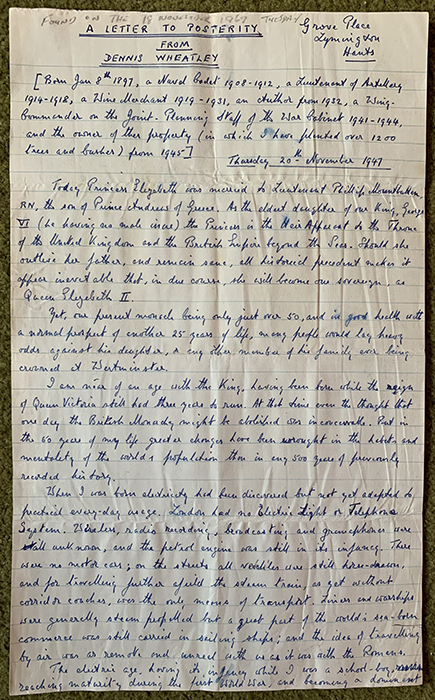 FOUND ON THE 18 NOVEMBER 1969 TUESDAY
A LETTER TO POSTERITY
FROM
DENNIS WHEATLEY
Grove Place
Lymington
Hants
[Born Jan 8th 1897, a Naval Cadet 1908-1912, a Lieutenant of Artillery
1914-1918, a Wine Merchant 1919-1931, an Author from 1932, a Wing-
Commander on the Joint-Planning Staff of the War Cabinet 1941-1944,
and the owner of this property (in which I have planted over 1200
trees and bushes) from 1945]
Thursday 20th November 1947
Today Princess Elizabeth was married to Lieutenant Phillip Mountbatten
RN, the son of Prince Andrew of Greece. As the eldest daughter of our King, George
VI (he having no male issue) the Princess is the Heir Apparent to the Throne
of the United Kingdom and the British Empire beyond the Seas. Should she
outlive her father, and remain sane, all historical precedent makes it
appear inevitable that, in due course, she will become our sovereign, as
Queen Elizabeth II.
Yet, our present monarch being only just over 50, and in good health with
a normal prospect of another 25 years of life, many people would lay heavy
odds against his daughter, or any other member of his family ever being
crowned at Westminster.
I am near of an age with the King, having been born while the reign
of Queen Victoria still had three years to run. At that time even the thought that
one day the British Monarchy might be abolished was inconceivable. But in
the 50 years of my life greater changes have been wrought in the habits and
mentality of the world's population than in any 500 years of previously
recorded history.
When I was born electricity had been discovered but not yet adapted to
practical every-day usage. London had no Electric Light or Telephone
System. Wireless, radio recording, broadcasting and gramophones were
still unknown, and the petrol engine was still in its infancy. There
were no motor cars; on the streets all vehicles were still horse-drawn,
and for travelling further afield the steam train, as yet without
corridor coaches, was the only means of transport. Liners and warships
were generally steam propelled but a great part of the world's sea-born
commerce was still carried in sailing ships; and the idea of travelling
by air was as remote and unreal with us as it was with the Romans.
The electric age, having its infancy while I was a school-boy,
reaching maturity during the first World War, and becoming a dominant